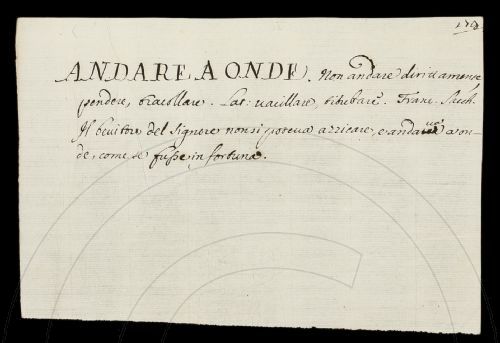 ANDARE A ONDE. Non andare dirittamente,
pendere, tracollare. Lat: vacillare, titubare. Franc. Sacch.
Il bevitore del Signore non si poteva azzicare, e andava a on-
de, come se fusse in fortuna.